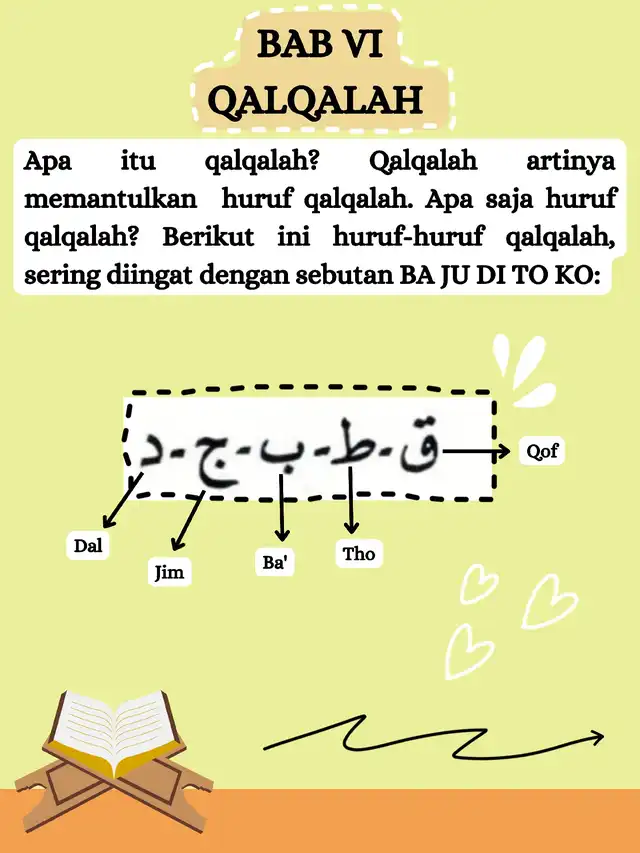 BAB VI
QALQALAH
Apa itu qalqalah? Qalqalah artinya
memantulkan huruf qalqalah. Apa saja huruf
qalqalah? Berikut ini huruf-huruf qalqalah,
sering diingat dengan sebutan BA JU DI TO KO:
ق - ط - ب - ج - د
Qof
Dal
Jim
Ba'
Tho